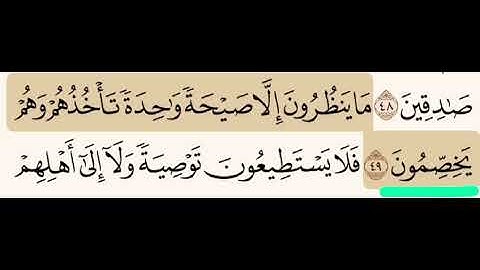 صَٰدِقِينَ ٤٨ مَا يَنظُرُونَ إِلَّا صَيْحَةً وَٰحِدَةً تَأْخُذُهُمْ وَهُمْ
يَخِصِّمُونَ ٤٩ فَلَا يَسْتَطِيعُونَ تَوْصِيَةً وَلَآ إِلَىٰٓ أَهْلِهِمْ